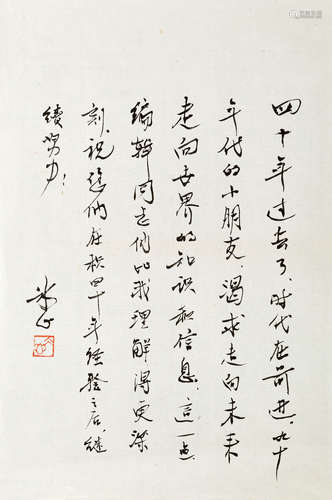 四十年过去了,时代在前进,九十
年代的小朋友,渴求走向未来
走向世界的知识和信息,这一点
编辑同志们比我理解得更深
刻,祝你们在积四十年经验之后,继
续努力!
冰心